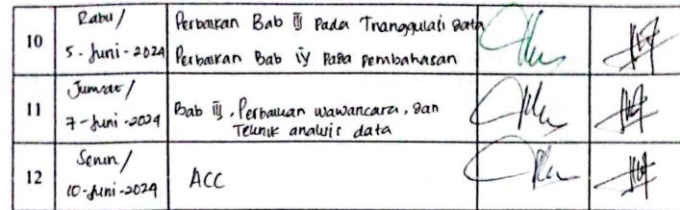 10
Rabu/
5-Juni-2024
Perbaikan Bab iij Pada Trianggulasi Data
Perbaikan Bab iv Pada pembahasan
11
Jumat/
7-Juni-2024
Bab iij, Perbaikan wawancara, dan
Teknik analisis data
12
Senin/
10-Juni-2024
ACC